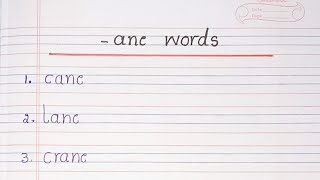 - ane words
1. cane
2. lane
3. crane